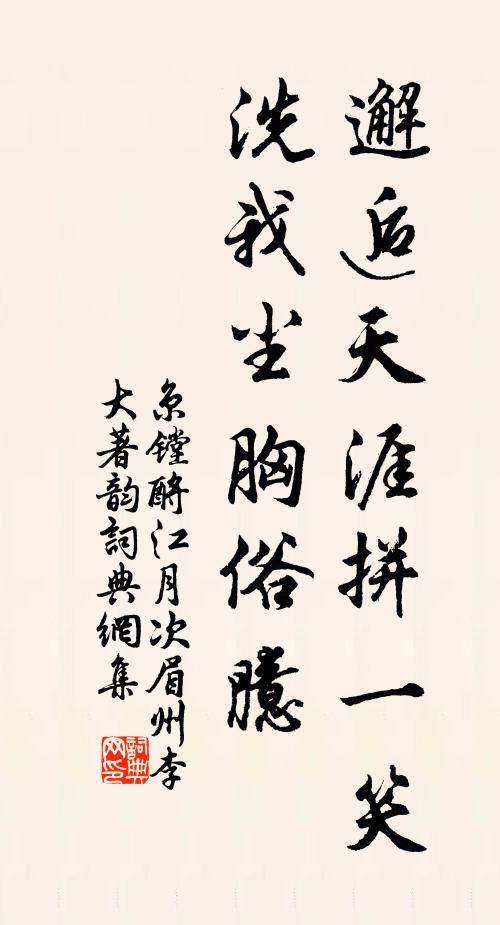 邂逅天涯拼一笑
洗我尘胸俗臆
京鏜酹江月次眉州李
大著韵詞典網集
詞典
网印